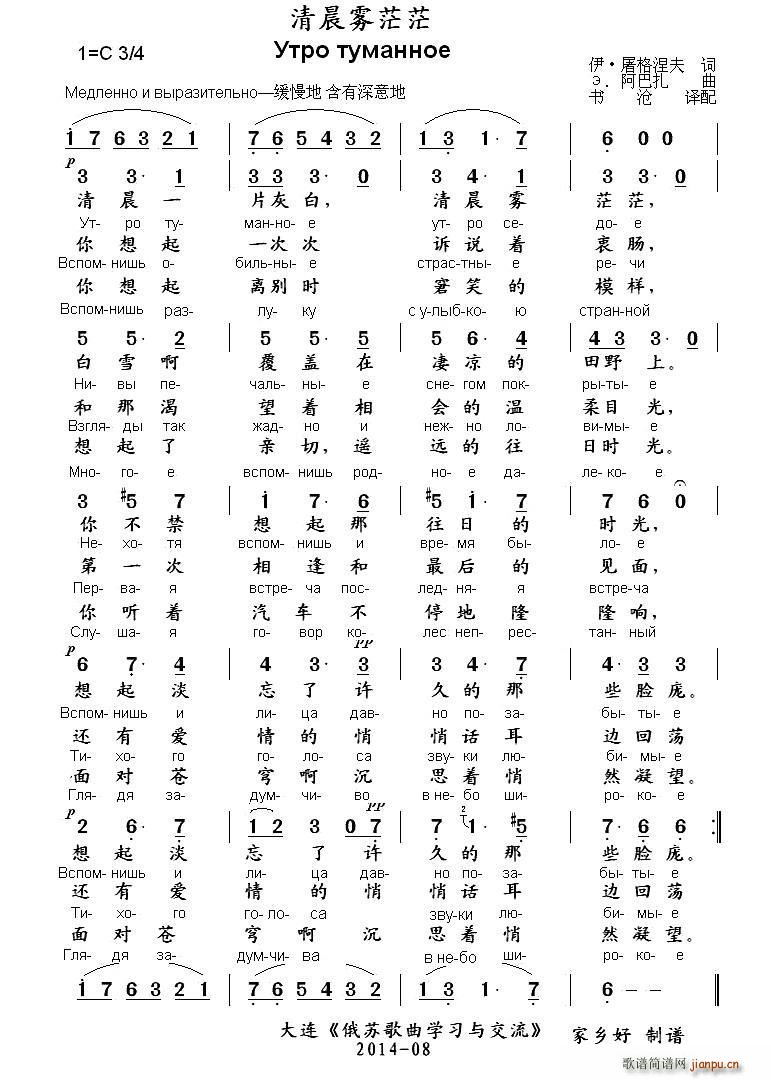 清晨雾茫茫
Утро туманное
1=C 3/4
伊·屠格涅夫 词
Э. 阿巴扎 曲
书沧 译配
Медленно и выразительно—缓慢地 含有深意地
i 7 6 3 2 1 | 7 6 5 4 3 2 | 1 3 1· 7 | 6 0 0
p
3 3· 1 | 3 3 3· 0 | 3 4· 1 | 3 3· 0
清晨一 片灰白, 清晨雾 茫茫,
Ут- ро ту- ман-но- е ут- ро се- до- е
你想起 一次次 诉说着 衷肠,
Вспом-нишь о- биль-ны- е страс-тны- е ре- чи
你想起 离别时 窘笑的 模样,
Вспом-нишь раз- лу- ку с у-лыб-ко- ю стран-ной
5 5· 2 | 5 5· 5 | 5 6· 4 | 4 3 3· 0
白雪啊 覆盖在 凄凉的 田野上。
Ни- вы пе- чаль- ны- е сне- гом пок- ры-ты- е
和那渴 望着相 会的温 柔目光,
Взгля-ды так жад-но и неж-но ло- ви-мы- е
想起了 亲切,遥 远的往 日时光。
Мно- го-е вспом-нишь род- но- е да- ле- ко- е
3 #5 7 | i 7· 6 | #5 i· 7 | 7 6 0
你不禁 想起那 往日的 时光,
Не- хо-тя вспом-нишь и вре- мя бы- ло- е
第一次 相逢和 最后的 见面,
Пер- ва- я встре- ча пос- лед-ня- я встре-ча
你听着 汽车不 停地隆 隆响,
Слу- ша- я го- вор ко- лес неп-рес- тан-ный
p pp
6 7· 4 | 4 3· 3 | 3 4· 7 | 4· 3 3
想起淡 忘了许 久的那 些脸庞。
Вспом- нишь и ли- ца дав- но по- за- бы- ты- е
还有爱 情的悄 悄话耳 边回荡
Ти- хо-го го-ло-са зву- ки лю- би- мы-е
面对苍 穹啊沉 思着悄 然凝望。
Гля-дя за- дум- чи- во в не- бо ши- ро-ко- е
p pp
2 6· 7 | 1 2 3 0 7 | 7· 2 1· #5 | 7· 6 6·
想起淡 忘了许 久的那 些脸庞。
Вспом- нишь и ли- ца дав- но по- за- бы- ты- е
还有爱 情的悄 悄话耳 边回荡
Ти- хо-го го- ло- са зву-ки лю- би- мы-е
面对苍 穹啊沉 思着悄 然凝望。
Гля- дя за- дум-чи- ва в не-бо ши- ро- ко- е
i 7 6 3 2 1 | 7 6 5 4 3 2 | 1 3 1· 7 | 6 — —
大连《俄苏歌曲学习与交流》 家乡好 制谱
2014-08
歌谱简谱网
jianpu.cn